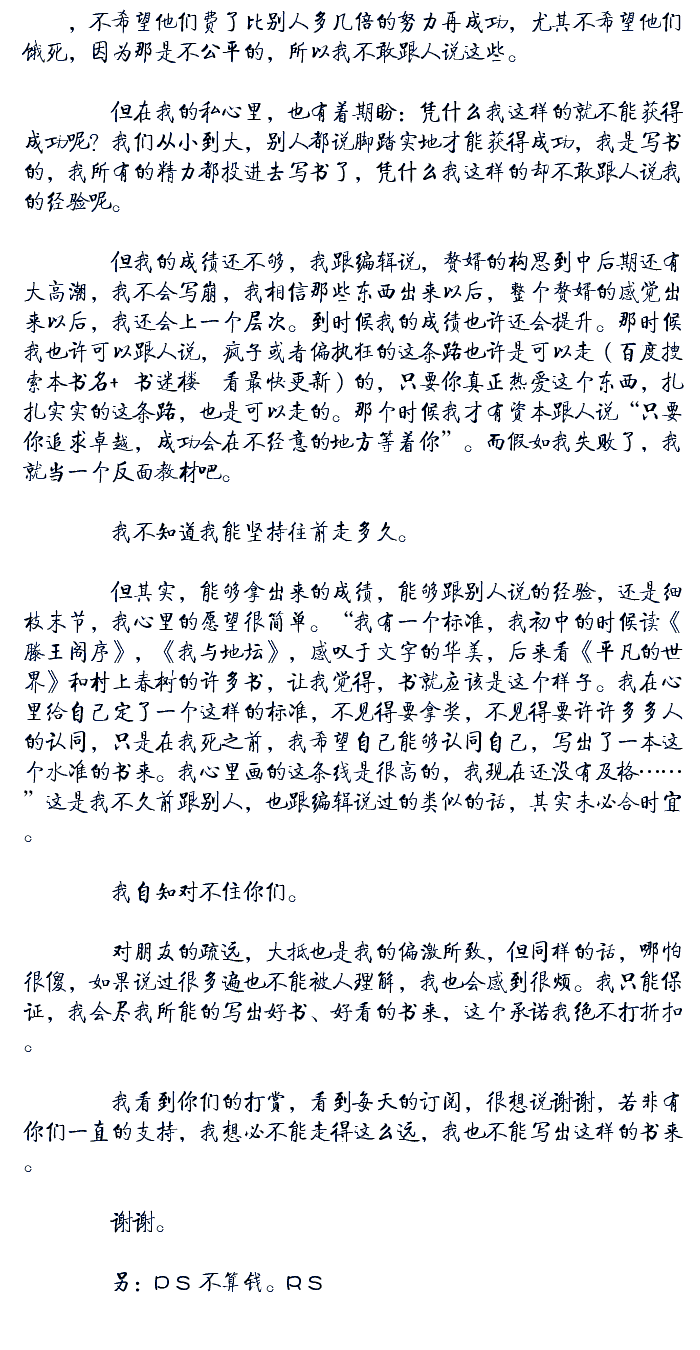 ，不希望他们费了比别人多几倍的努力再成功，尤其不希望他们
饿死，因为那是不公平的，所以我不敢跟人说这些。
但在我的私心里，也有着期盼：凭什么我这样的就不能获得
成功呢？我们从小到大，别人都说脚踏实地才能获得成功，我是写书
的，我所有的精力都投进去写书了，凭什么我这样的却不敢跟人说我
的经验呢。
但我的成绩还不够，我跟编辑说，赘婿的构思到中后期还有
大高潮，我不会写崩，我相信那些东西出来以后，整个赘婿的感觉出
来以后，我还会上一个层次。到时候我的成绩也许还会提升。那时候
我也许可以跟人说，疯子或者偏执狂的这条路也许是可以走（百度搜
索本书名+ 书迷楼 看最快更新）的，只要你真正热爱这个东西，扎
扎实实的这条路，也是可以走的。那个时候我才有资本跟人说“只要
你追求卓越，成功会在不经意的地方等着你”。而假如我失败了，我
就当一个反面教材吧。
我不知道我能坚持往前走多久。
但其实，能够拿出来的成绩，能够跟别人说的经验，还是细
枝末节，我心里的愿望很简单。“我有一个标准，我初中的时候读《
滕王阁序》，《我与地坛》，感叹于文字的华美，后来看《平凡的世
界》和村上春树的许多书，让我觉得，书就应该是这个样子。我在心
里给自己定了一个这样的标准，不见得要拿奖，不见得要许许多多人
的认同，只是在我死之前，我希望自己能够认同自己，写出了一本这
个水准的书来。我心里画的这条线是很高的，我现在还没有及格……
”这是我不久前跟别人，也跟编辑说过的类似的话，其实未必合时宜
。
我自知对不住你们。
对朋友的疏远，大抵也是我的偏激所致，但同样的话，哪怕
很傻，如果说过很多遍也不能被人理解，我也会感到很烦。我只能保
证，我会尽我所能的写出好书、好看的书来，这个承诺我绝不打折扣
。
我看到你们的打赏，看到每天的订阅，很想说谢谢，若非有
你们一直的支持，我想必不能走得这么远，我也不能写出这样的书来
。
谢谢。
另：PS不算钱。RS